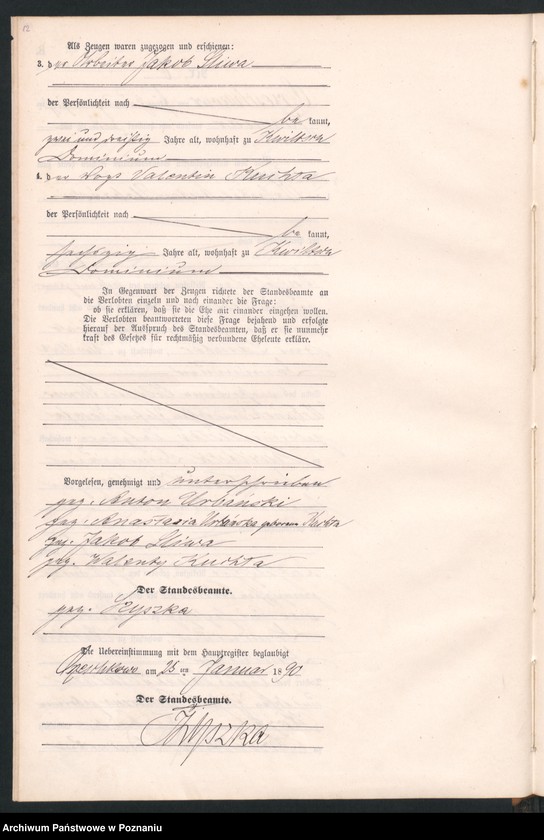 12
Als Zeugen waren zugezogen und erschienen:
3. der Arbeiter Jakob Sliwa
der Persönlichkeit nach
be kannt,
zwei und dreißig Jahre alt, wohnhaft zu Kwiltsch
Dominium
4. der Vogt Valentin Kuchta
der Persönlichkeit nach
be kannt,
sechzig Jahre alt, wohnhaft zu Kwiltsch
Dominium
In Gegenwart der Zeugen richtete der Standesbeamte an
die Verlobten einzeln und nach einander die Frage:
ob sie erklären, daß sie die Ehe mit einander eingehen wollen.
Die Verlobten beantworteten diese Frage bejahend und erfolgte
hierauf der Ausspruch des Standesbeamten, daß er sie nunmehr
kraft des Gesetzes für rechtmäßig verbundene Eheleute erkläre.
Vorgelesen, genehmigt und unterschrieben
gez. Anton Urbański
gez. Anastasia Urbańska geborene Kuchta
gez. Jakob Sliwa
gez. Walenty Kuchta
Der Standesbeamte.
gez. Zyszka
Die Uebereinstimmung mit dem Hauptregister beglaubigt
am 28 ten Januar 1890
Der Standesbeamte.
Zyszka
Archiwum Państwowe w Poznaniu